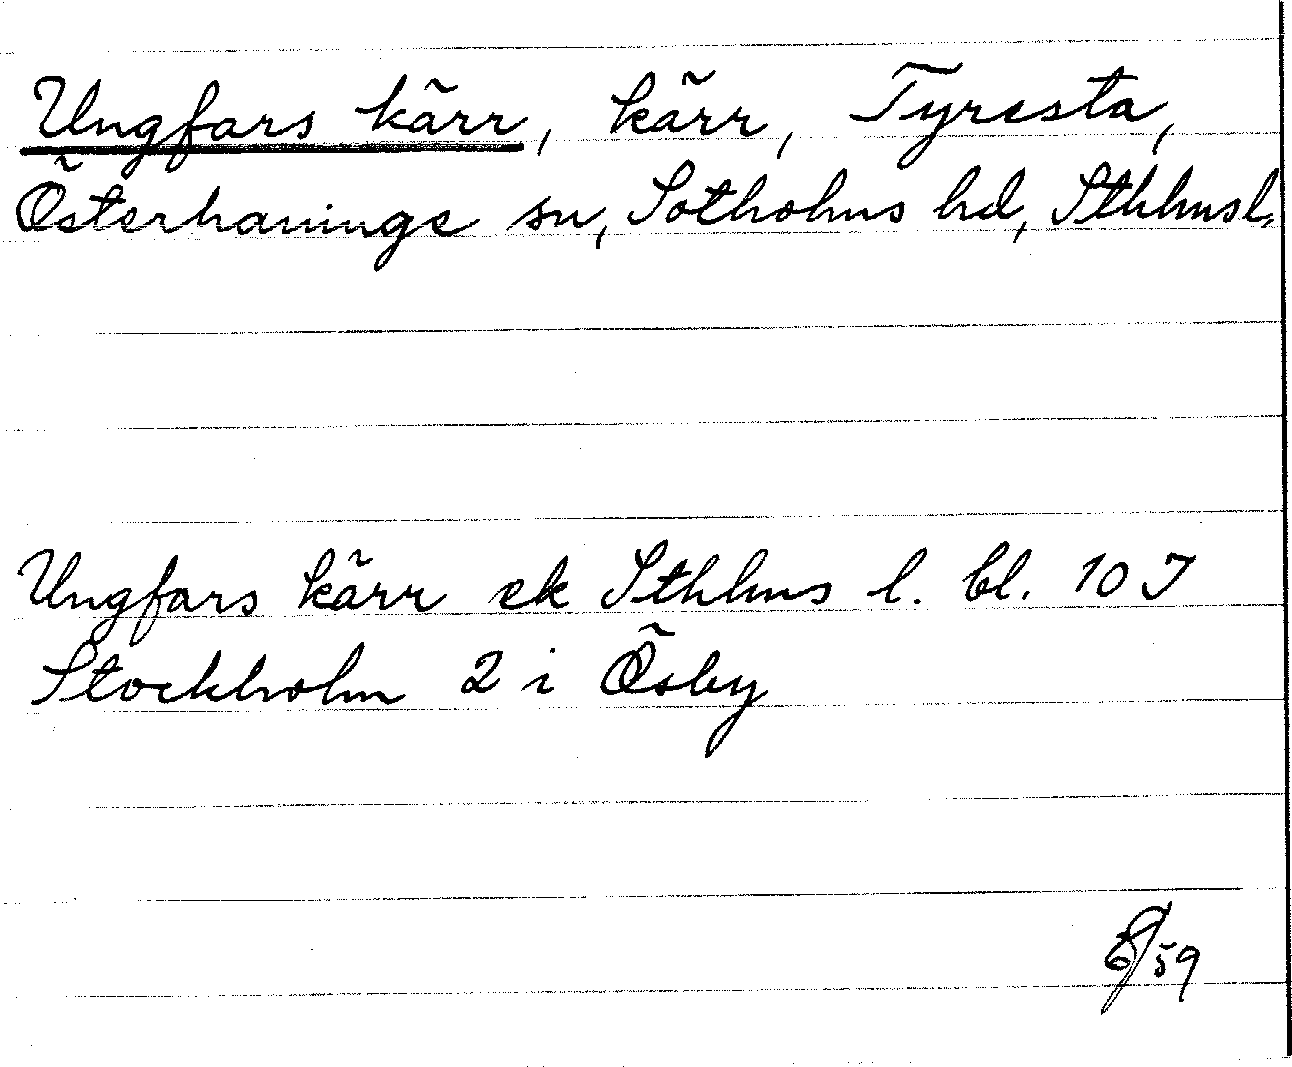 Ungfars kärr, kärr, Tyresta,
Österhaninge sn, Sotholms hd, Sthlmsl.
Ungfars kärr ek Sthlms l. bl. 10 I
Stockholm 2 i Ösby
59